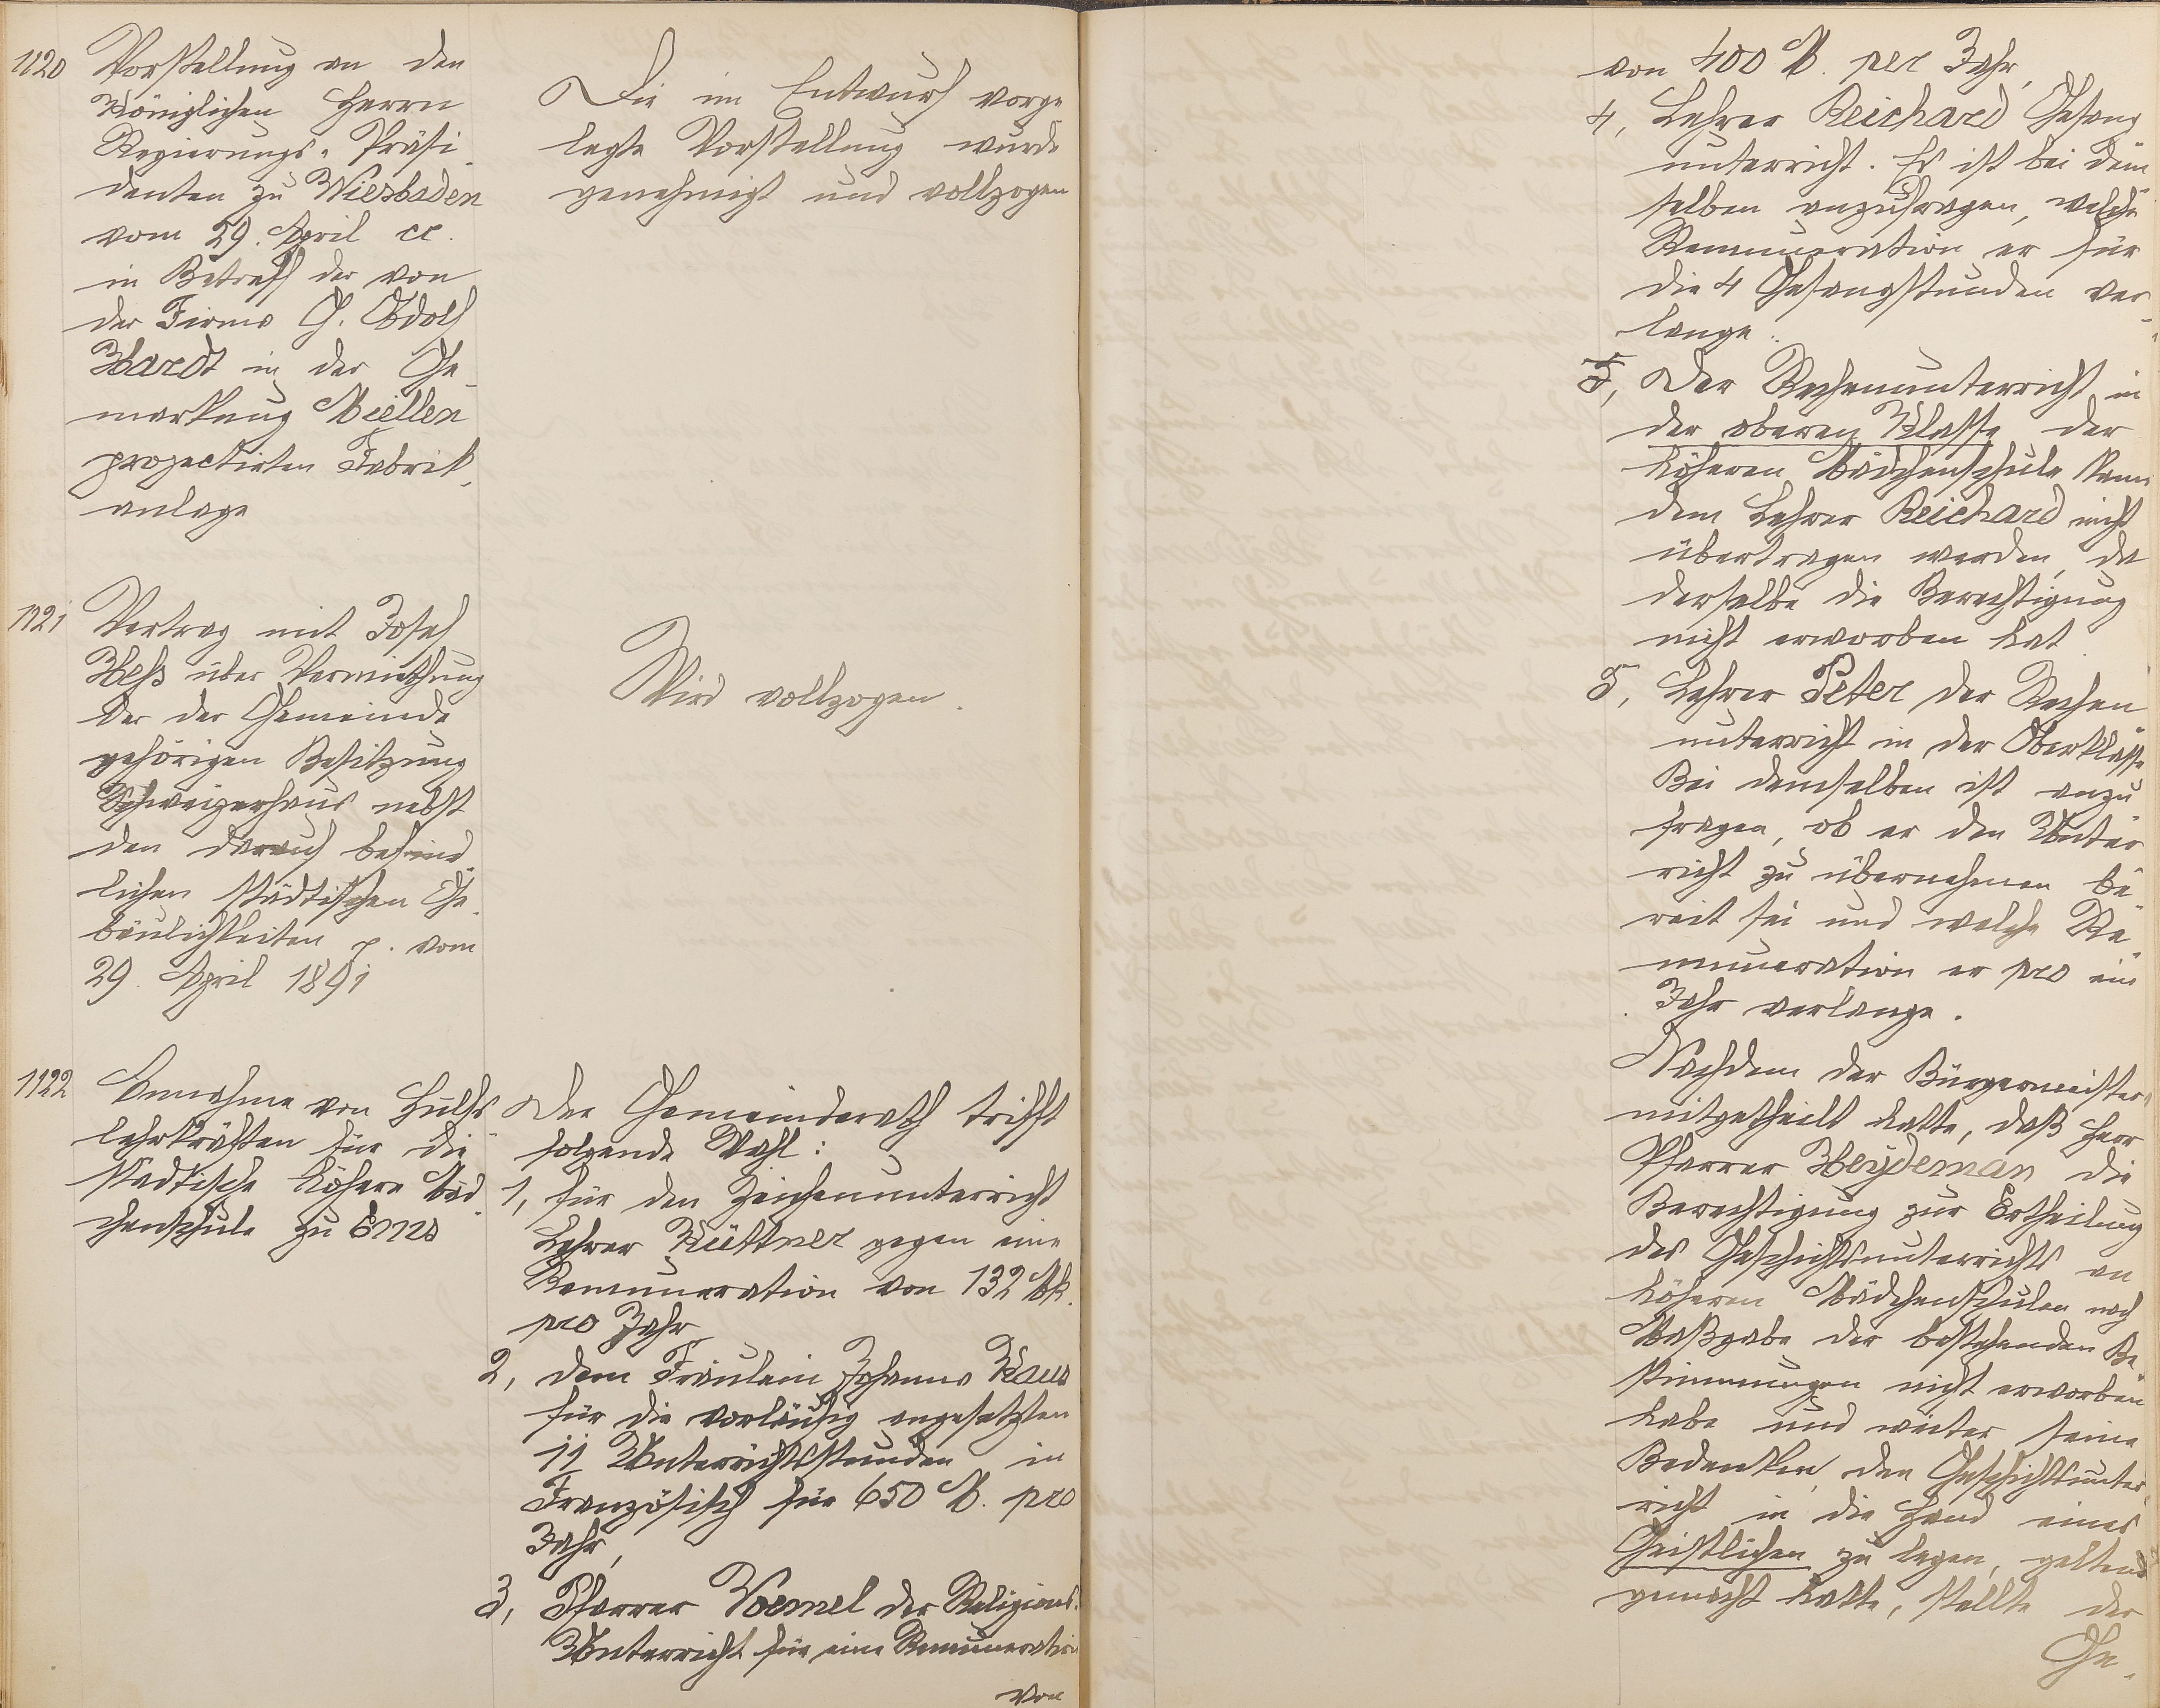 1120
Vorstellung an den
Königlichen Herrn
Regierungs-Präsi
denten zu Wiesbaden
vom 29. April cr.
in Betreff der von
der Firma G. Adolf
Hardt in der Ge-
markung Miellen
projectirten Fabrik-
anlage
Die im Entwurf vorge
legte Vorstellung wurde
genehmigt und vollzogen
1121
Vertrag mit Josef
Heß über Vermiethung
der der Gemeinde
gehörigen Besitzung
Schweizerhaus nebst
den darauf befind
lichen städtischen Ge-
bäulichkeiten p. vom
29. April 1891
Wird vollzogen.
1122
Annahme von Hülfs
lehrkräften für die
städtische höhere Mäd
chenschule zu Ems
Der Gemeinderath trifft
folgende Wahl:
1, für den Zeichenunterricht
Lehrer Küttner gegen eine
Remuneration von 132 Mk.
pro Jahr
2, dem Fräulein Johanna Kaus
für die vorläufig angesetzten
11 Unterrichtsstunden in
Französisch für 650 M. pro
Jahr,
3, Pfarrer Voemel der Religions-
Unterricht für eine Remuneration
von
von 400 M. per Jahr,
4, Lehrer Reichard Gesang
unterricht. Es ist bei dem
selben anzufragen, welche
Remuneration er für
die 4 Gesangstunden ver-
lange.
5, Der Rechenunterricht in
der oberen Klasse der
höheren Mädchenschule kann
dem Lehrer Reichard nicht
übertragen werden, da
derselbe die Berechtigung
nicht erworben hat
5, Lehrer Peter der Rechen
unterricht in der Oberklasse
Bei demselben ist anzu
fragen, ob er den Unter
richt zu übernehmen be-
reit sei und welche Re
muneration er pro ein
Jahr verlange.
Nachdem der Bürgermeister
mitgetheilt hatte, daß Herr
Pfarrer Heydeman die
Berechtigung zur Ertheilung
des Geschichtsunterrichts an
höheren Mädchenschulen nach
Maßgabe der bestehenden Be
stimmungen nicht erworben
habe und weiter seine
Bedenken, den Geschichtsunter-
richt in die Hand eines
Geistlichen zu legen, geltend
gemacht hatte, stellte der
Ge-